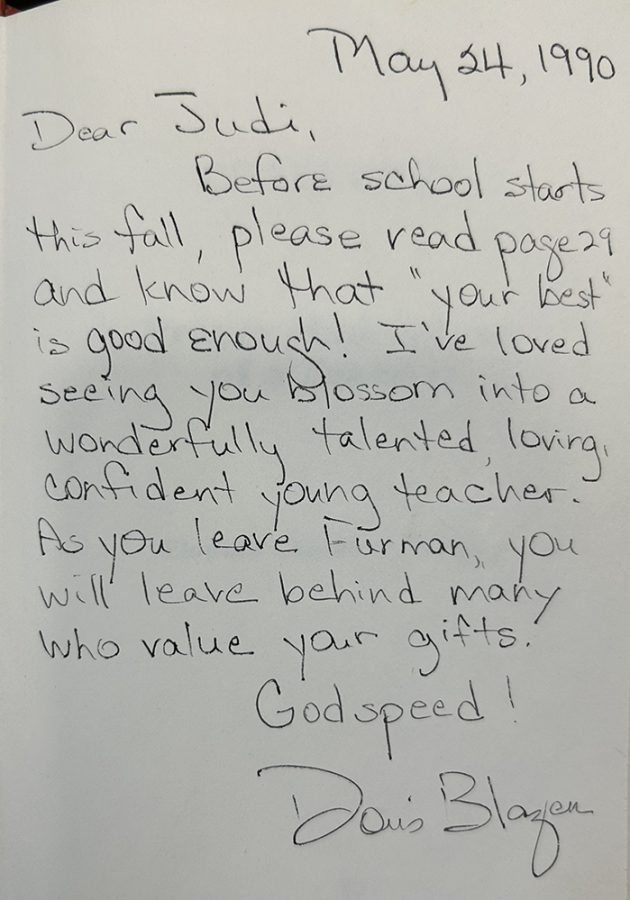 May 24, 1990
Dear Judi,
Before school starts
this fall, please read page 29
and know that "your best"
is good enough! I've loved
seeing you blossom into a
wonderfully talented, loving,
confident young teacher.
As you leave Furman, you
will leave behind many
who value your gifts.
Godspeed!
Doris Blazer